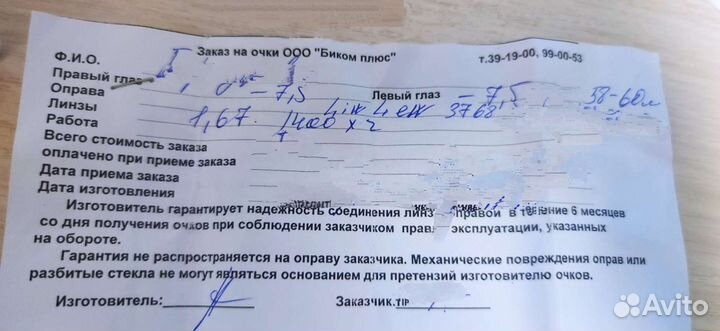 Заказ на очки ООО "Биком плюс" т.39-19-00, 99-00-53
Ф.И.О.
Правый глаз - 7,5 Левый глаз - 7,5 58-60
Оправа
Линзы 1,67. 1400 x 2 3768
Работа
Всего стоимость заказа
оплачено при приеме заказа
Дата приема заказа
Дата изготовления
Изготовитель гарантирует надежность соединения линз правой в течение 6 месяцев
со дня получения очков при соблюдении заказчиком прав эксплуатации, указанных
на обороте.
Гарантия не распространяется на оправу заказчика. Механические повреждения оправ или
разбитые стекла не могут являться основанием для претензий изготовителю очков.
Изготовитель: Заказчик.
Avito